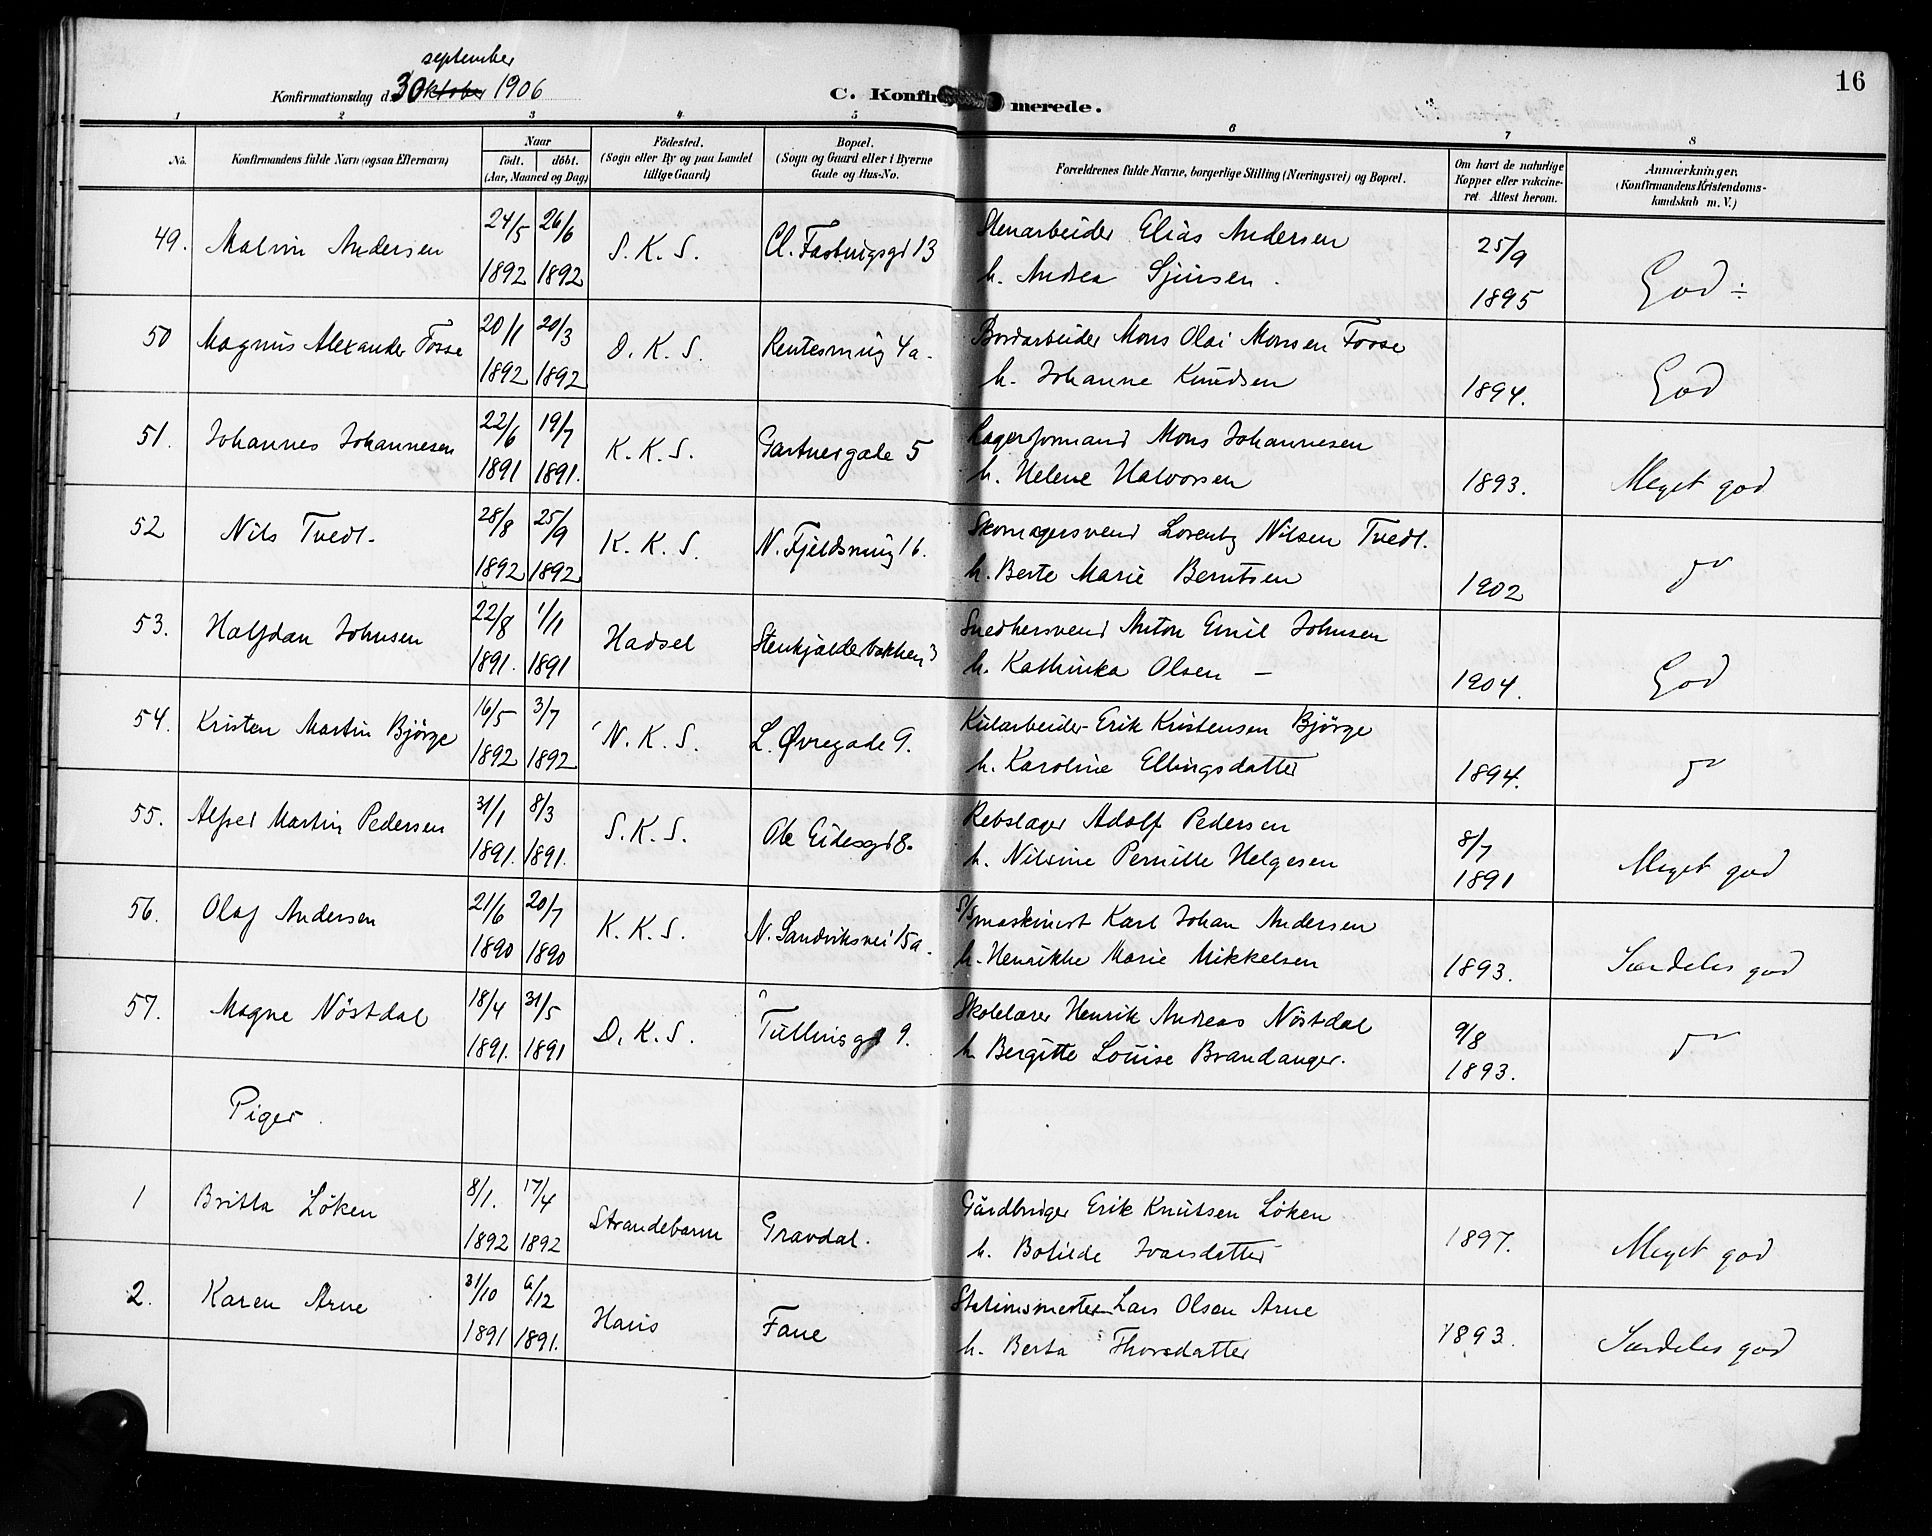 september
Konfirmationsdag d. 30 Oktober 1906
C. Konfirmerede.
16
1 2 3 4 5 6 7 8
No.
Konfirmandens fulde Navn (ogsaa Efternavn)
Naar
födt. döbt.
(Aar, Maaned og Dag)
Födested.
(Sogn eller By og paa Landet
tillige Gaard)
Bopæl.
(Sogn og Gaard eller i Byerne
Gade og Hus-No.
Forældrenes fulde Navne, borgerlige Stilling (Næringsvei) og Bopæl.
Om havt de naturlige
Kopper eller vakcine-
ret Attest herom.
Anmærkninger.
(Konfirmandens Kristendoms-
kundskab m. V.)
49. Malvin Andersen 24/5 1892 26/6 1892 S. K. S. Cl. Fastingsgd 13 Stenarbeider Elias Andersen
h. Andrea Sjursen. 25/9 1895 God ÷
50 Magnus Alexander Fosse 20/1 1892 20/3 1892 D. K. S. Rentesmug 4a. Bordarbeider Mons Olai Monsen Fosse
h. Johanne Knudsen 1894. God
51. Johannes Johannesen 22/6 1891 19/7 1891. K. K. S. Gartnergade 5 Lagerformand Mons Johannesen
h. Helene Halvorsen 1893. Meget god
52 Nils Tvedt. 28/8 1892 25/9 1892 K. K. S. N. Fjeldsmug 16. Skomagersvend Lorentz Nilsen Tvedt.
h. Berte Marie Berntsen 1902 do
53. Halfdan Johnsen 22/8 1891. 1/11 1891 Hadsel Stenkjælderbakken 3 Snedkersvend Anton Emil Johnsen
h. Kathinka Olsen — 1904. God
54. Kristen Martin Björge 16/5 1892 3/7 1892 N. K. S. L. Øvregade 9. Kularbeider Erik Kristensen Björge
h. Karoline Ellingsdatter 1894. do
55. Alfred Martin Pedersen 31/1 1891. 8/3 1891. S. K. S. Ole Eidesgd 8. Rebslager Adolf Pedersen
h. Nilsine Pernille Helgesen 8/7 1891 Meget god
56. Olaf Andersen 21/6 1890 20/7 1890 K. K. S. N. Sandviksvei 15a. S/S maskinist Karl Johan Andersen
h. Henrikke Marie Mikkelsen 1893. Særdeles god
57. Magne Nöstdal 18/4 1891. 31/5 1891 D. K. S. Tullinsgd 9. Skolelærer Henrik Andreas Nöstdal
h. Bergitte Louise Brandanger. 9/8 1893. do
Piger.
1 Britta Löken 8/1. 1892 17/4 1892 Strandebarm Gravdal. Gårdbruger Erik Knutsen Löken
h. Botilde Ivarsdatter 1897. Meget god
2. Karen Arne 31/10 1891 6/12 1891. Haus Fane Stationsmester Lars Olsen Arne
h. Berta Thorsdatter 1893. Særdeles god